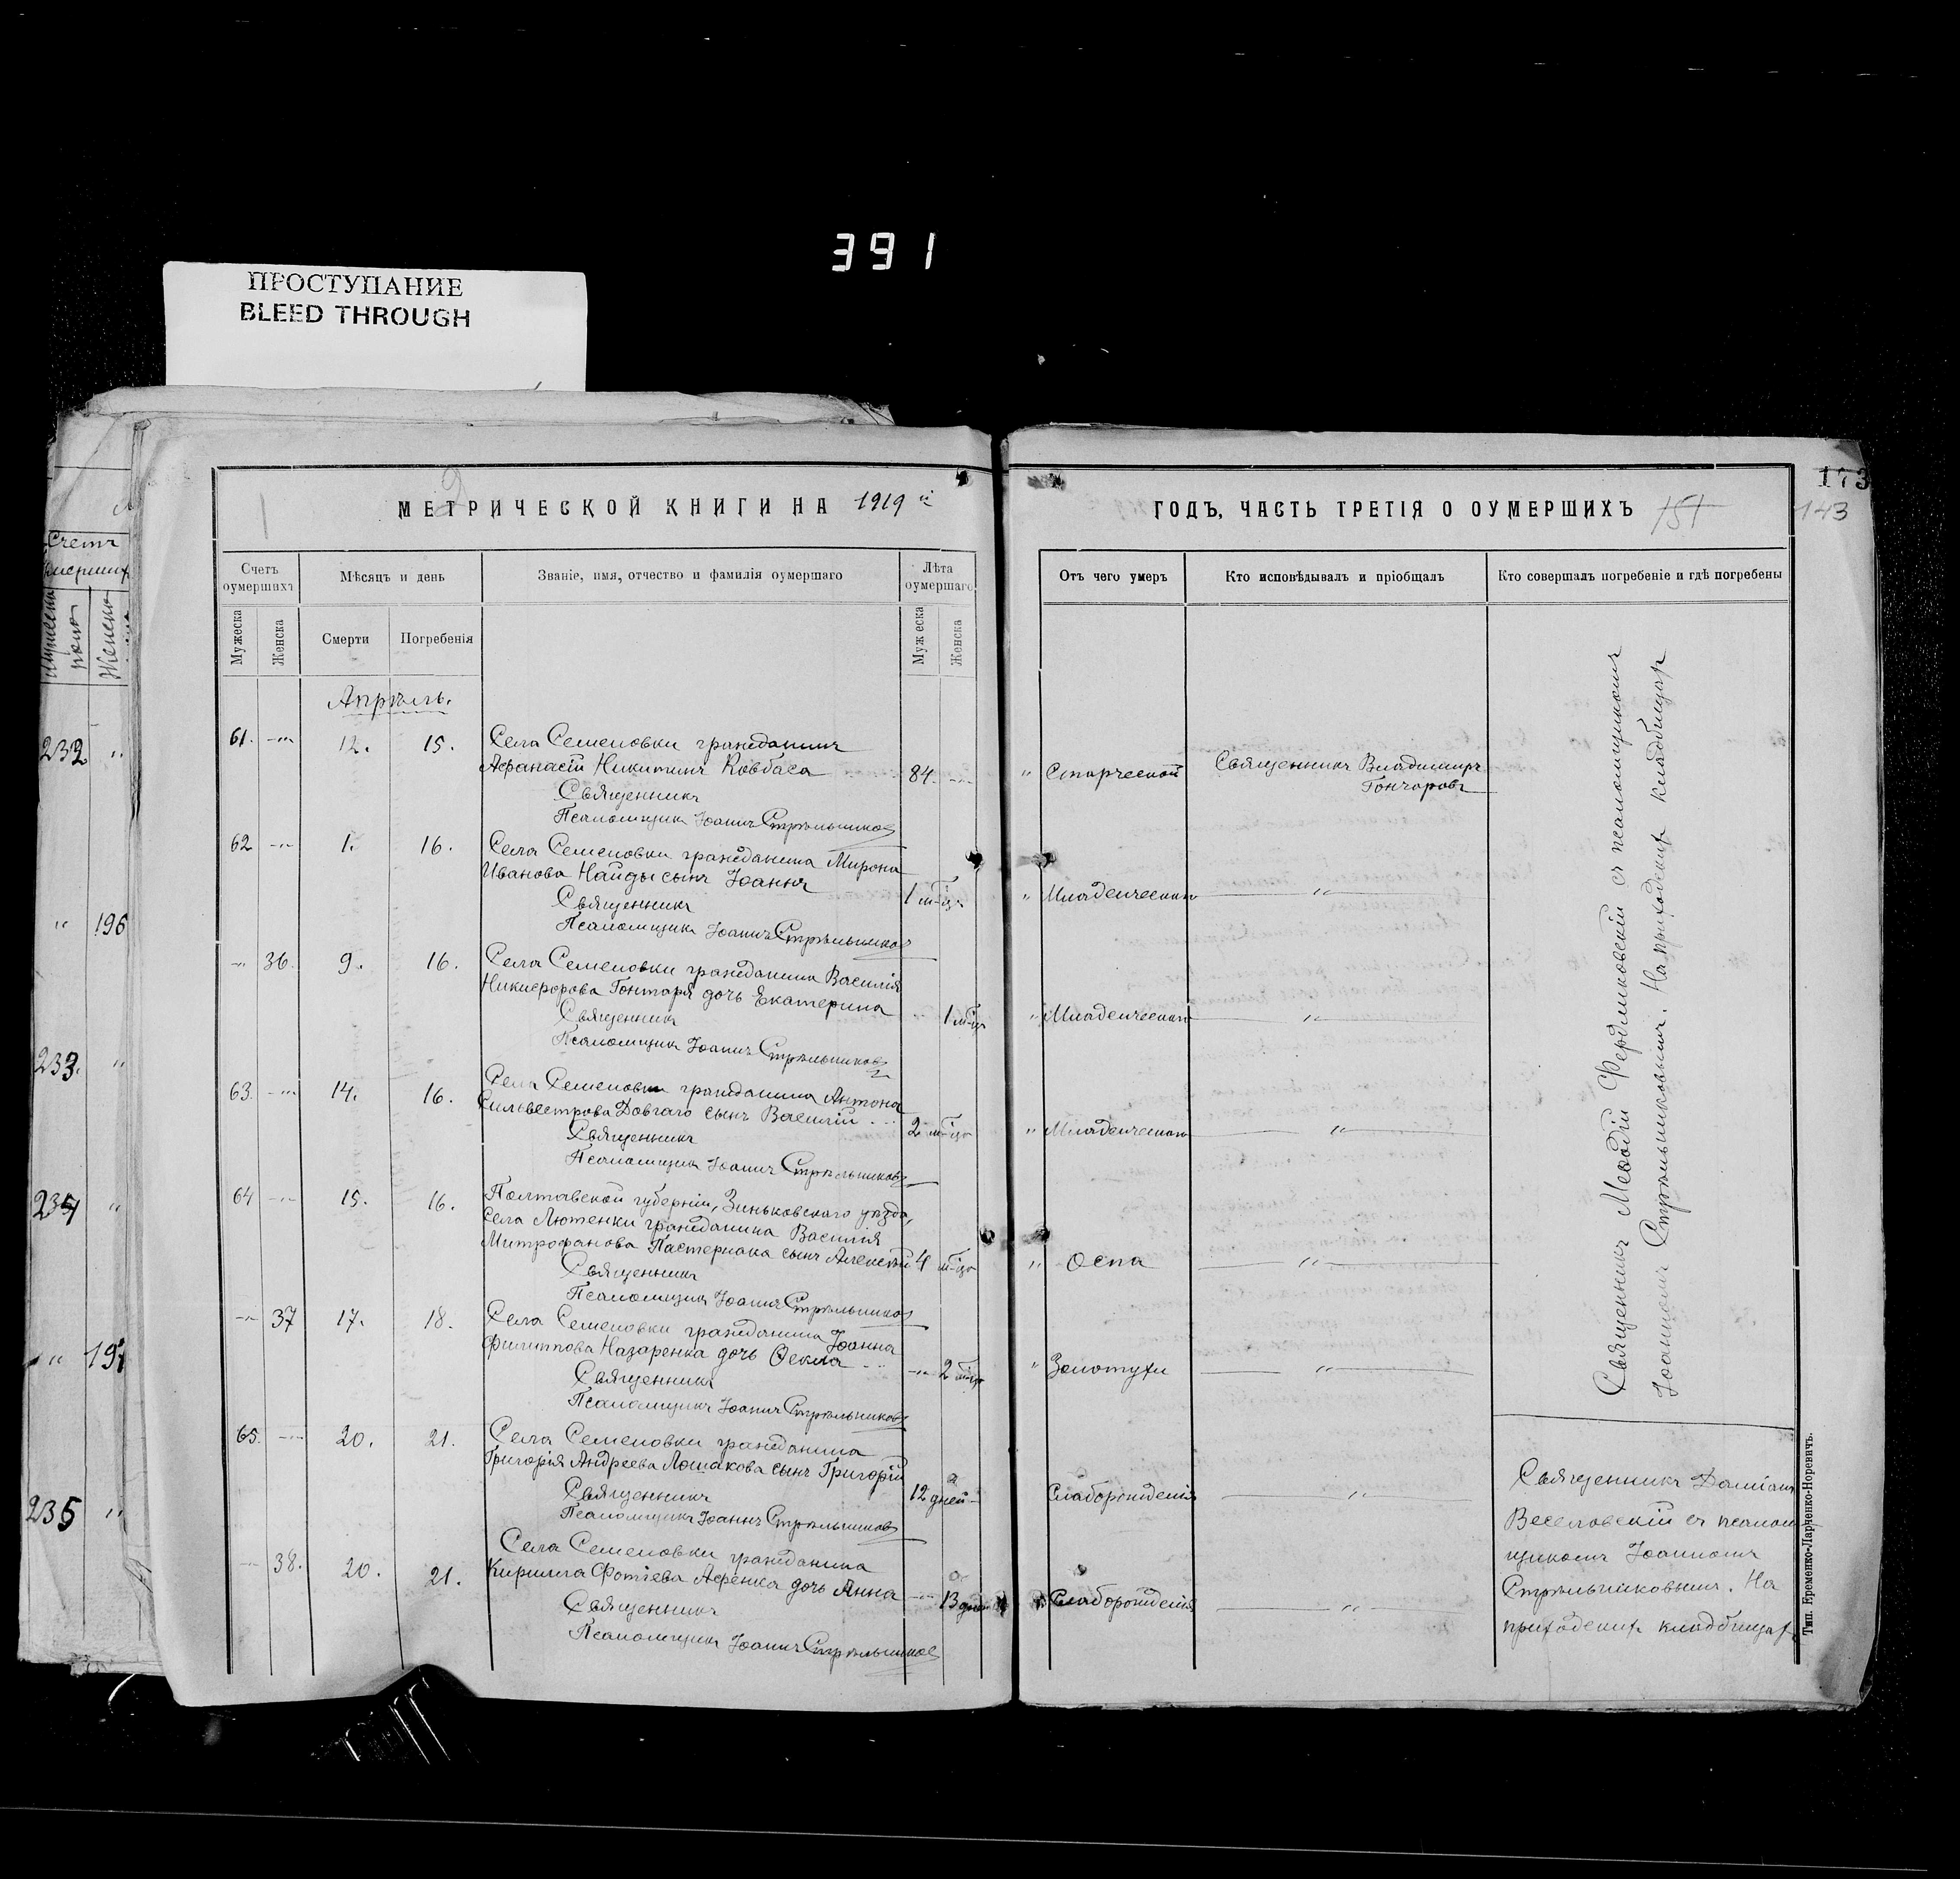 391
ПРОСТУПАНИЕ
BLEED THROUGH
173
МЕТРИЧЕСКОЙ КНИГИ НА 1919 й
ГОДЪ, ЧАСТЬ ТРЕТІЯ О ОУМЕРШИХЪ 151
143
Счетъ оумершихъ
Мѣсяцъ и день
Званіе, имя, отчество и фамилія оумершаго
Лѣта оумершаго
Отъ чего умеръ
Кто исповѣдывалъ и пріобщалъ
Кто совершалъ погребеніе и гдѣ погребены
Мужеска
Женска
Смерти
Погребенія
Мужеска
Женска
Апрѣль.
61. 12. 15. Села Семеновки гражданинъ
Афанасій Никитинъ Ковбаса 84. " Старческой Священникъ Владимиръ
Гончаровъ
Священникъ
Псаломщикъ Іоаннъ Стрѣльниковъ
62 1. 16. Села Семеновки гражданина Мирона
Иванова Найды сынъ Іоаннъ 1 м-цъ " Младенческая "
Священникъ
Псаломщикъ Іоаннъ Стрѣльниковъ
36. 9. 16. Села Семеновки гражданина Василія
Никифорова Гонтаря дочь Екатерина 1 м-цъ " Младенческая "
Священникъ
Псаломщикъ Іоаннъ Стрѣльниковъ
63. 14. 16. Села Семеновки гражданина Антона
Сильвестрова Довгаго сынъ Василій 2 м-ца " Младенческая "
Священникъ
Псаломщикъ Іоаннъ Стрѣльниковъ
64 15. 16. Полтавской губерніи, Зиньковскаго уѣзда,
села Лютенки гражданина Василія
Митрофанова Пастернака сынъ Алексѣй 4 м-ца " Оспа "
Священникъ
Псаломщикъ Іоаннъ Стрѣльниковъ
37 17. 18. Села Семеновки гражданина Іоанна
Филиппова Назаренка дочь Ѳекла 2 м-ца " Золотухи "
Священникъ
Псаломщикъ Іоаннъ Стрѣльниковъ
65. 20. 21. Села Семеновки гражданина
Григорія Андреева Лошакова сынъ Григорій 12 дней Слаборожденія "
Священникъ
Псаломщикъ Іоаннъ Стрѣльниковъ
38. 20. 21. Села Семеновки гражданина
Кирилла Фотіева дочь Анна 13 дней Слаборожденія "
Священникъ
Псаломщикъ Іоаннъ Стрѣльниковъ
Священникъ Меѳодій съ псаломщикомъ
Іоанномъ Стрѣльниковымъ. На приходскихъ кладбищахъ
Священникъ Даміанъ
Веселовскій съ псалом-
щикомъ Іоанномъ
Стрѣльниковымъ. На
приходскихъ кладбищахъ
Тип. Еременко-Ларченко-Норевичъ.
Счетъ
Женска
232 "
" 196
233. "
234 "
" 197
235 "